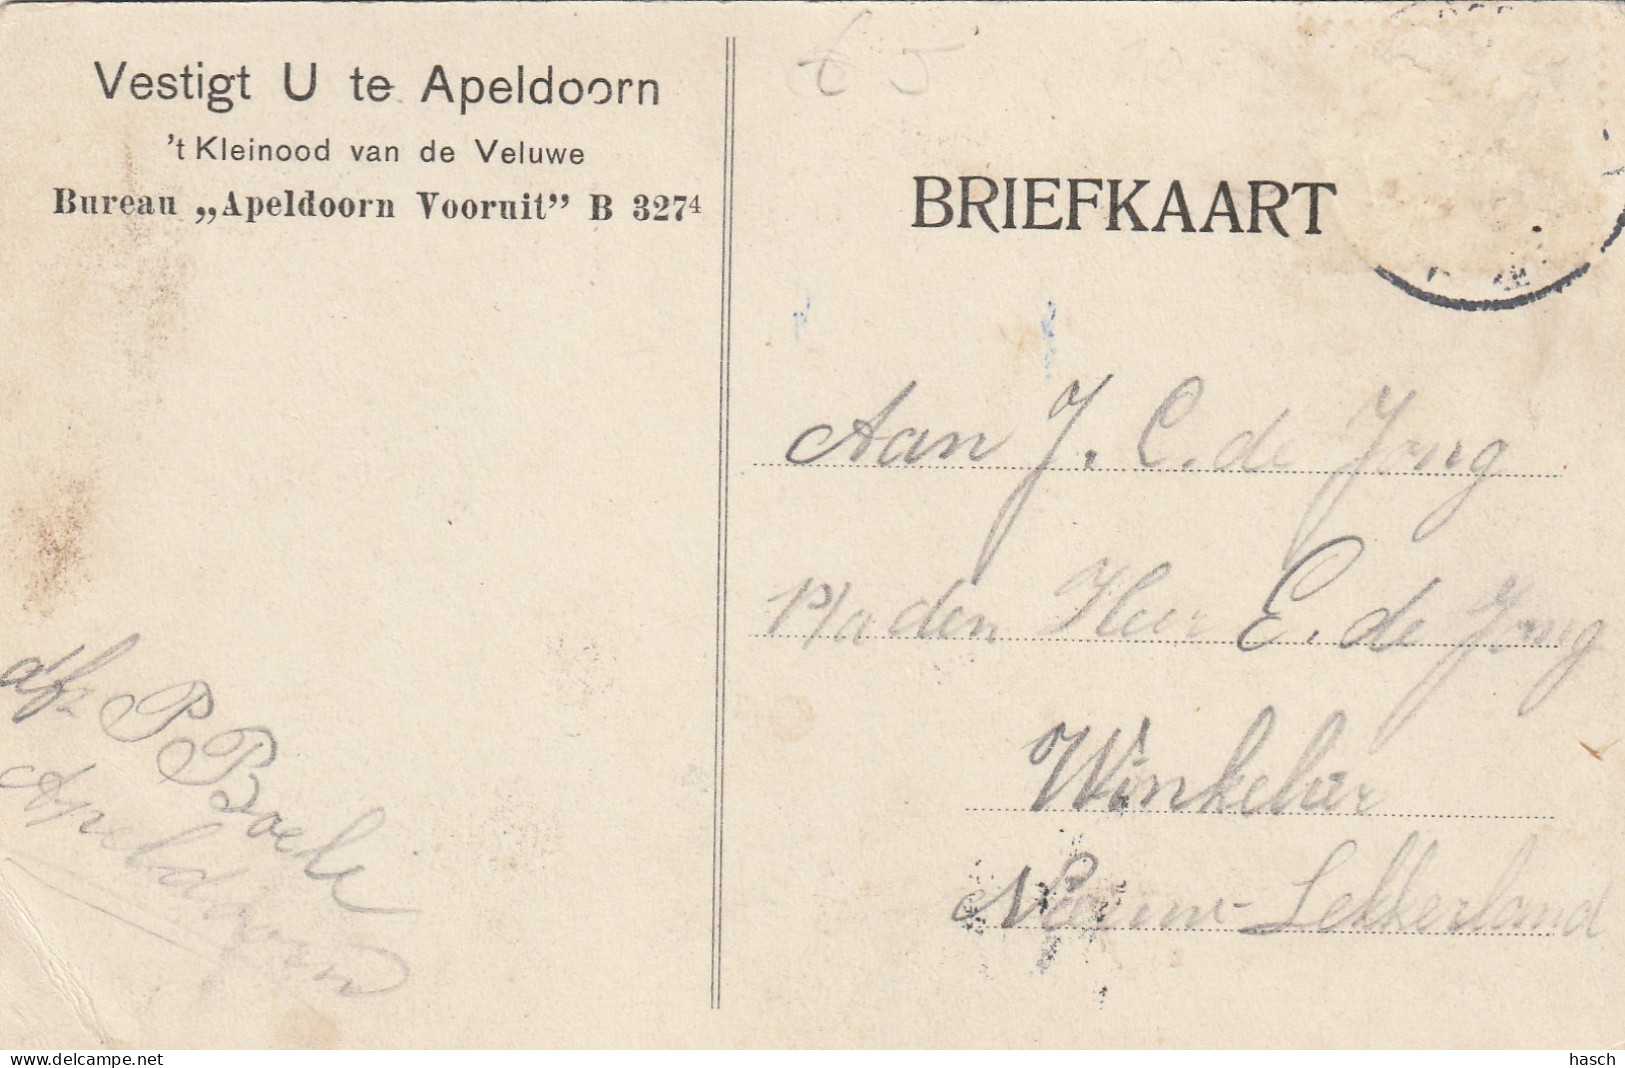 Vestigt U te Apeldoorn
't Kleinood van de Veluwe
Bureau „Apeldoorn Vooruit” B 327⁴
BRIEFKAART
Aan J. C. de Jong
p/a den Heer E. de Jong
Winkelier
Nieuw-Lekkerland
afz P. Boele
Apeldoorn
delcampe.net
hasch